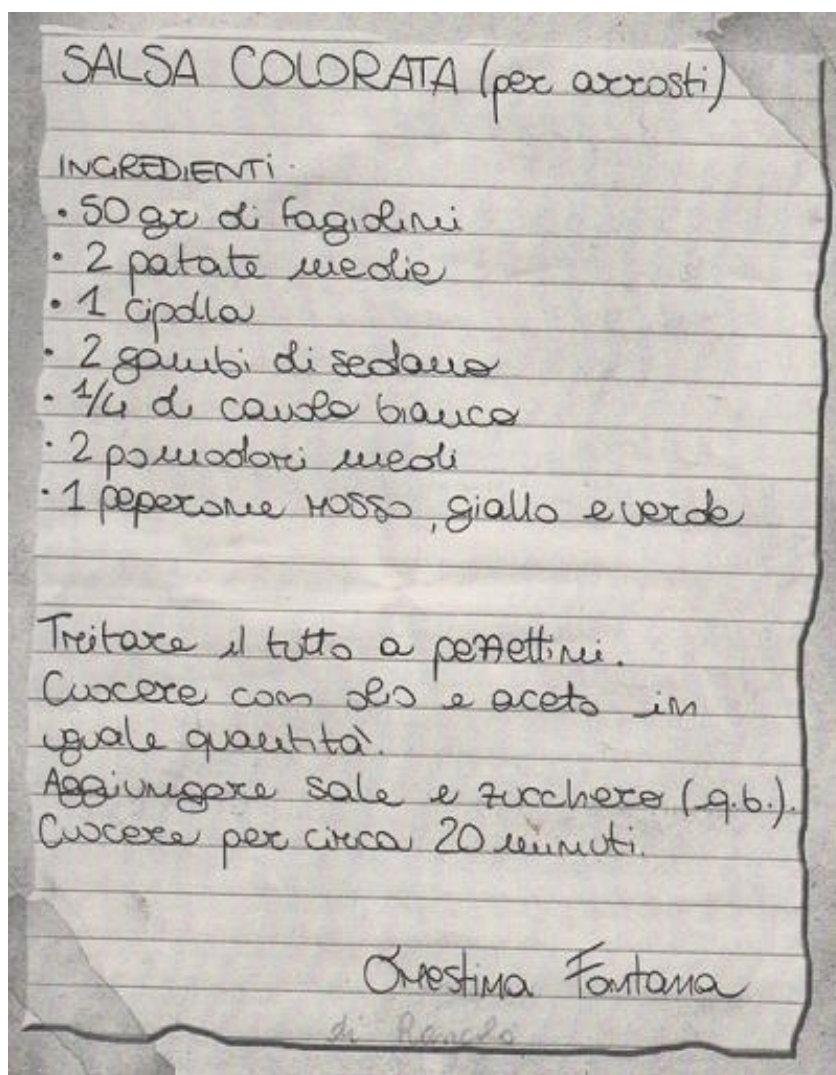 SALSA COLORATA (per arrosti)
INGREDIENTI.
• 50 gr di fagiolini
• 2 patate medie
• 1 cipolla
• 2 gambi di sedano
• 1/4 di cavolo bianco
• 2 pomodori medi
• 1 peperone rosso, giallo e verde
Tritare il tutto a pezzettini.
Cuocere con olio e aceto in
uguale quantità.
Aggiungere sale e zucchero (q.b.).
Cuocere per circa 20 minuti.
Orestina Fontana
di